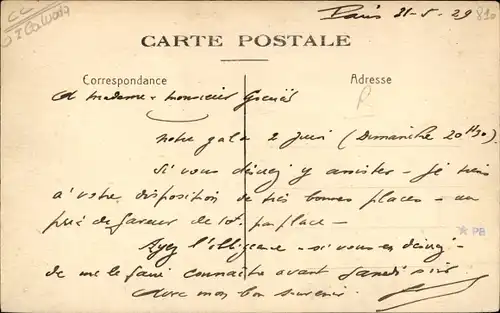 Paris 31-5-29
CARTE POSTALE
Correspondance
Adresse
A madame - monsieur
notre gala 2 juin (Dimanche 20H30).
Si vous désirez y assister - je tiens
à votre disposition de très bonnes places - au
prix de faveur de 10f. par place -
Ayez l'obligeance - si vous en désirez -
de me le faire connaître avant samedi soir.
Avec mon bon souvenir.
* PB